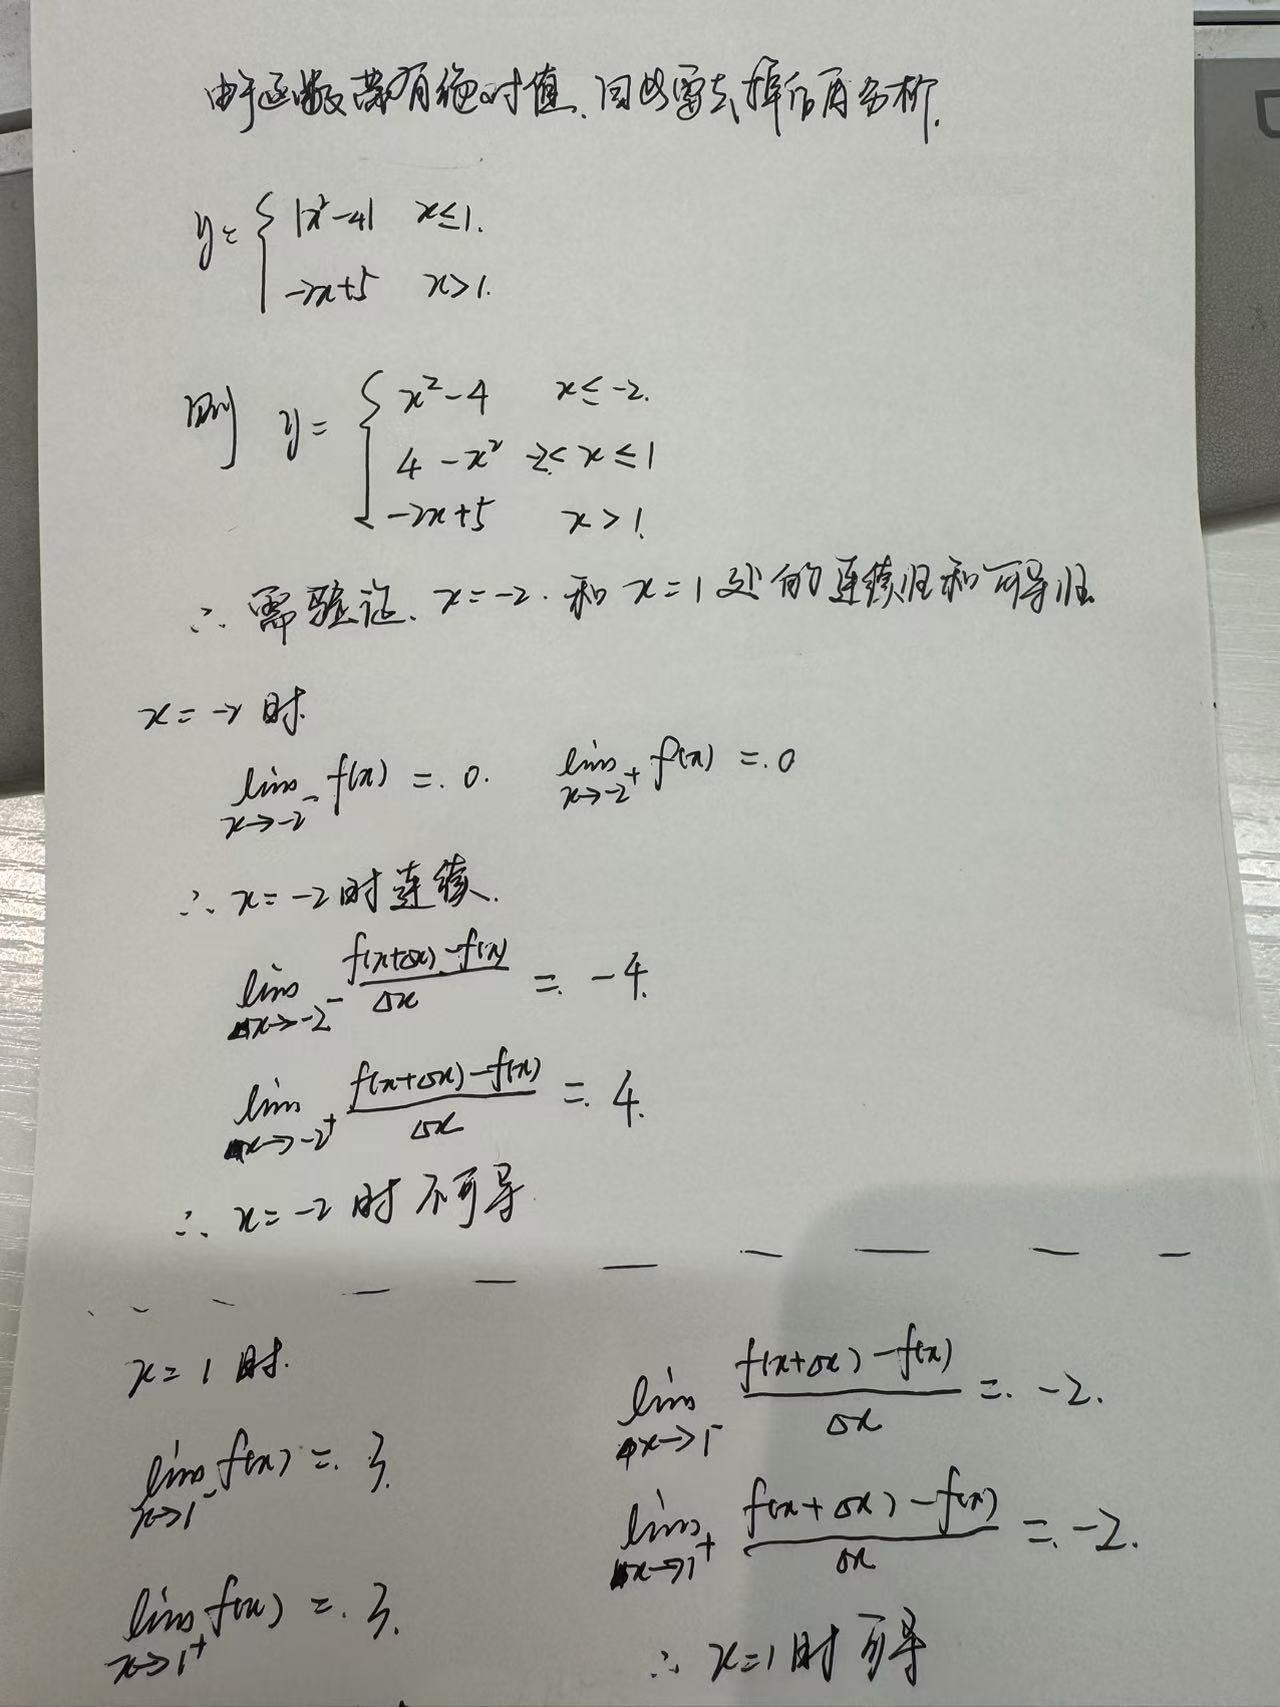 由于函数带有绝对值,因此需去掉后再分析.
y= { |x²-4| x≤1.
-2x+5 x>1.
则 y= { x²-4 x≤-2.
4-x² -2<x≤1
-2x+5 x>1.
∴ 需验证. x=-2. 和 x=1 处的连续性和可导性
x=-2时.
lim x→-2⁻ f(x) = 0. lim x→-2⁺ f(x) = 0
∴ x=-2时连续.
lim Δx→-2⁻ (f(x+Δx)-f(x))/Δx = -4.
lim Δx→-2⁺ (f(x+Δx)-f(x))/Δx = 4.
∴ x=-2时不可导.
x=1时.
lim x→1⁻ f(x) = 3.
lim x→1⁺ f(x) = 3.
lim Δx→1⁻ (f(x+Δx)-f(x))/Δx = -2.
lim Δx→1⁺ (f(x+Δx)-f(x))/Δx = -2.
∴ x=1时可导